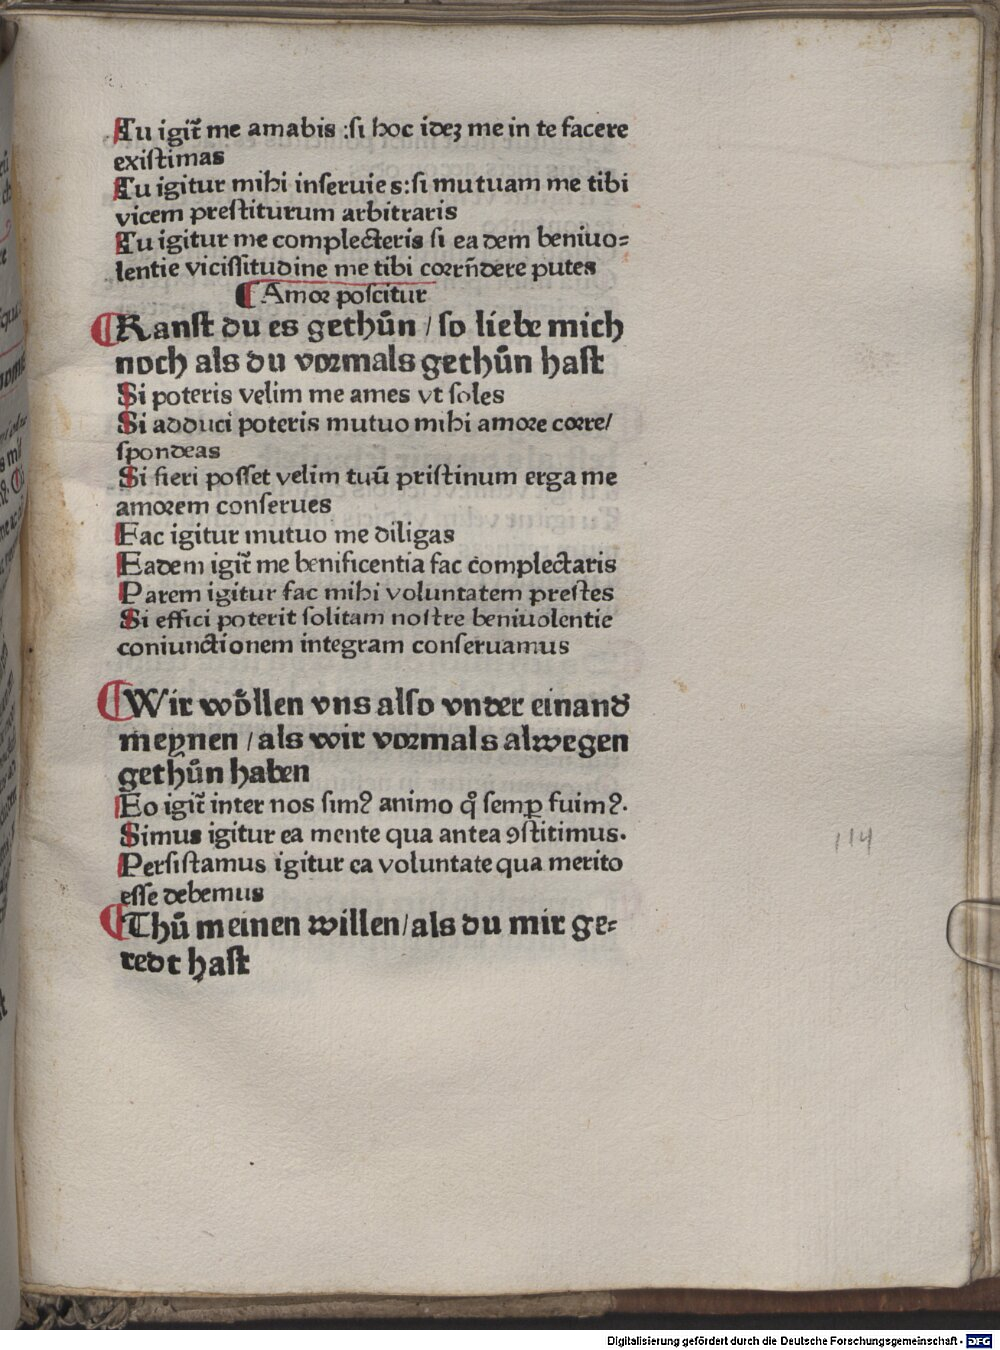 Tu igit̃ me amabis :si hoc ideʒ me in te facere
existimas
Tu igitur mihi inseruies:si mutuam me tibi
vicem prestiturum arbitraris
Tu igitur me complecteris si ea dem beniuo=
lentie vicissitudine me tibi corrñdere putes
¶ Amor poscitur
¶ Kanst du es gethůn / so liebe mich
noch als du vormals gethůn hast
Si poteris velim me ames vt soles
Si adduci poteris mutuo mihi amore corre/
spondeas
Si fieri posset velim tuū pristinum erga me
amorem conserues
Fac igitur mutuo me diligas
Eadem igit̃ me benificentia fac cõmplectaris
Parem igitur fac mihi voluntatem prestes
Si effici poterit solitam nostre beniuolentie
coniunctionem integram conseruamus
¶ Wir wőllen vns also vnder einand̕
meynen / als wir vormals alwegen
gethůn haben
Eo igit̃ inter nos simꝰ animo q̊ semꝑ fuimꝰ.
Simus igitur ea mente qua antea ꝯstitimus.
Persistamus igitur ea voluntate qua merito
esse debemus
¶ Thů meinen willen/als du mir ge=
redt hast
114
Digitalisierung gefördert durch die Deutsche Forschungsgemeinschaft - DFG